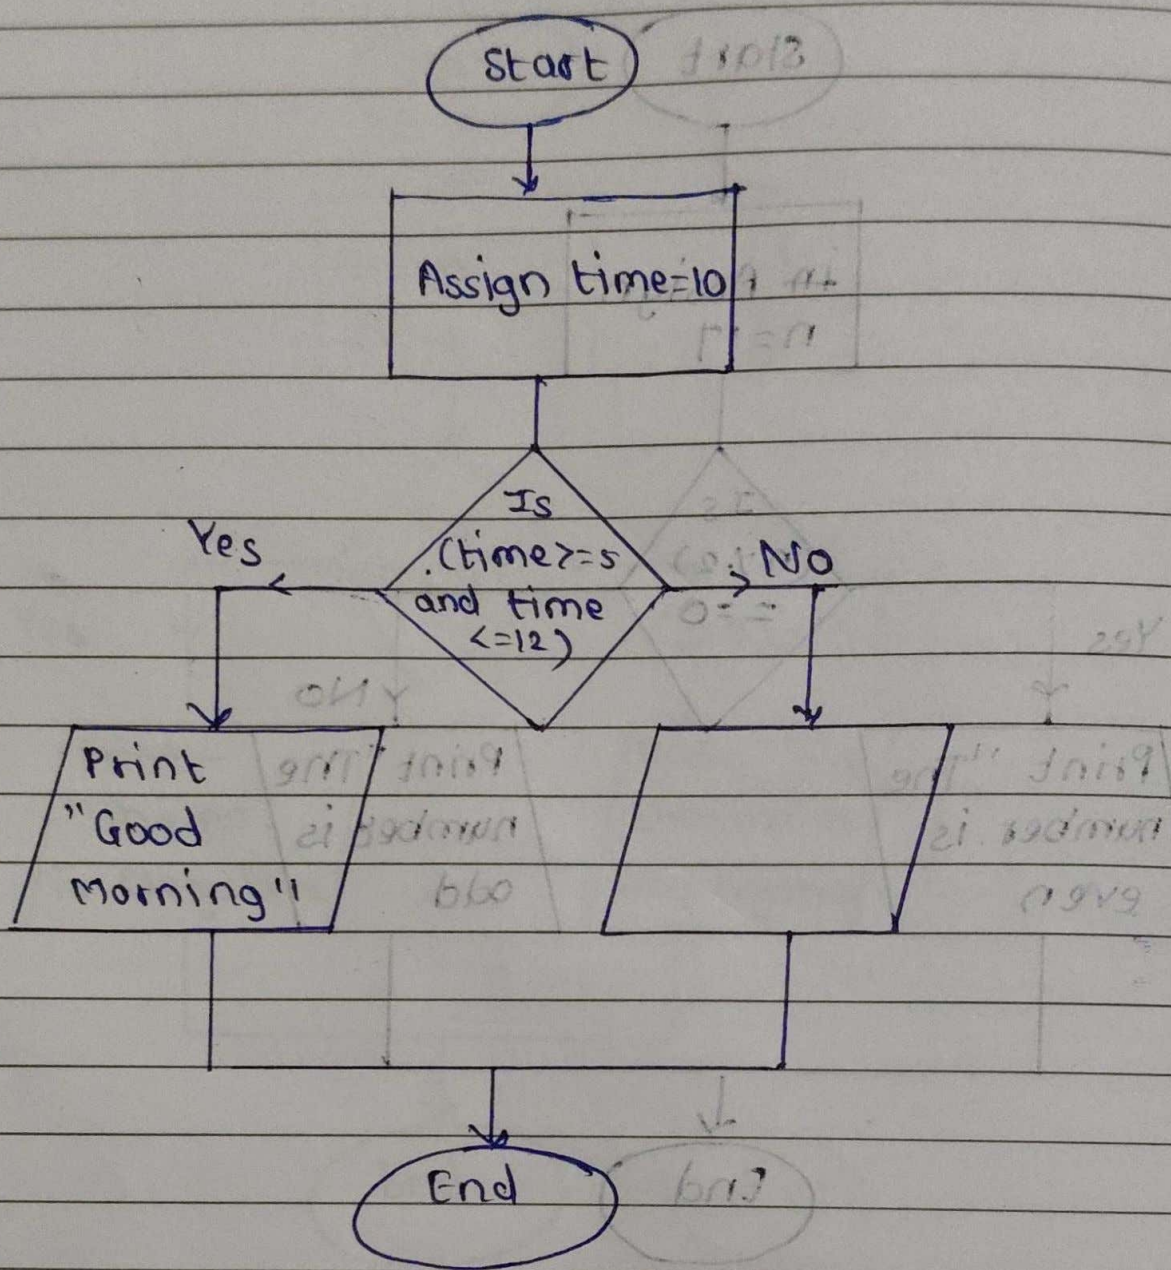 Start
Assign time=10
Is
(time>=5
and time
<=12)
Yes
No
Print
"Good
Morning"
End